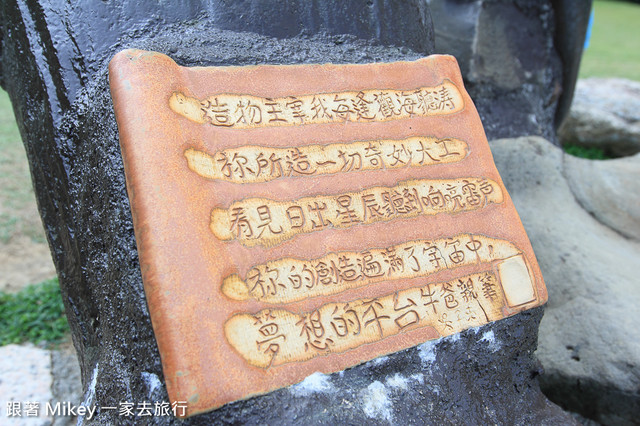 造物主宰我每逢觀海聽濤
祢所造一切奇妙大工
看見日出星辰聽到响亮雷声
祢的創造遍滿了宇宙中
夢想的平台牛爸親筆
跟著 Mikey 一家去旅行